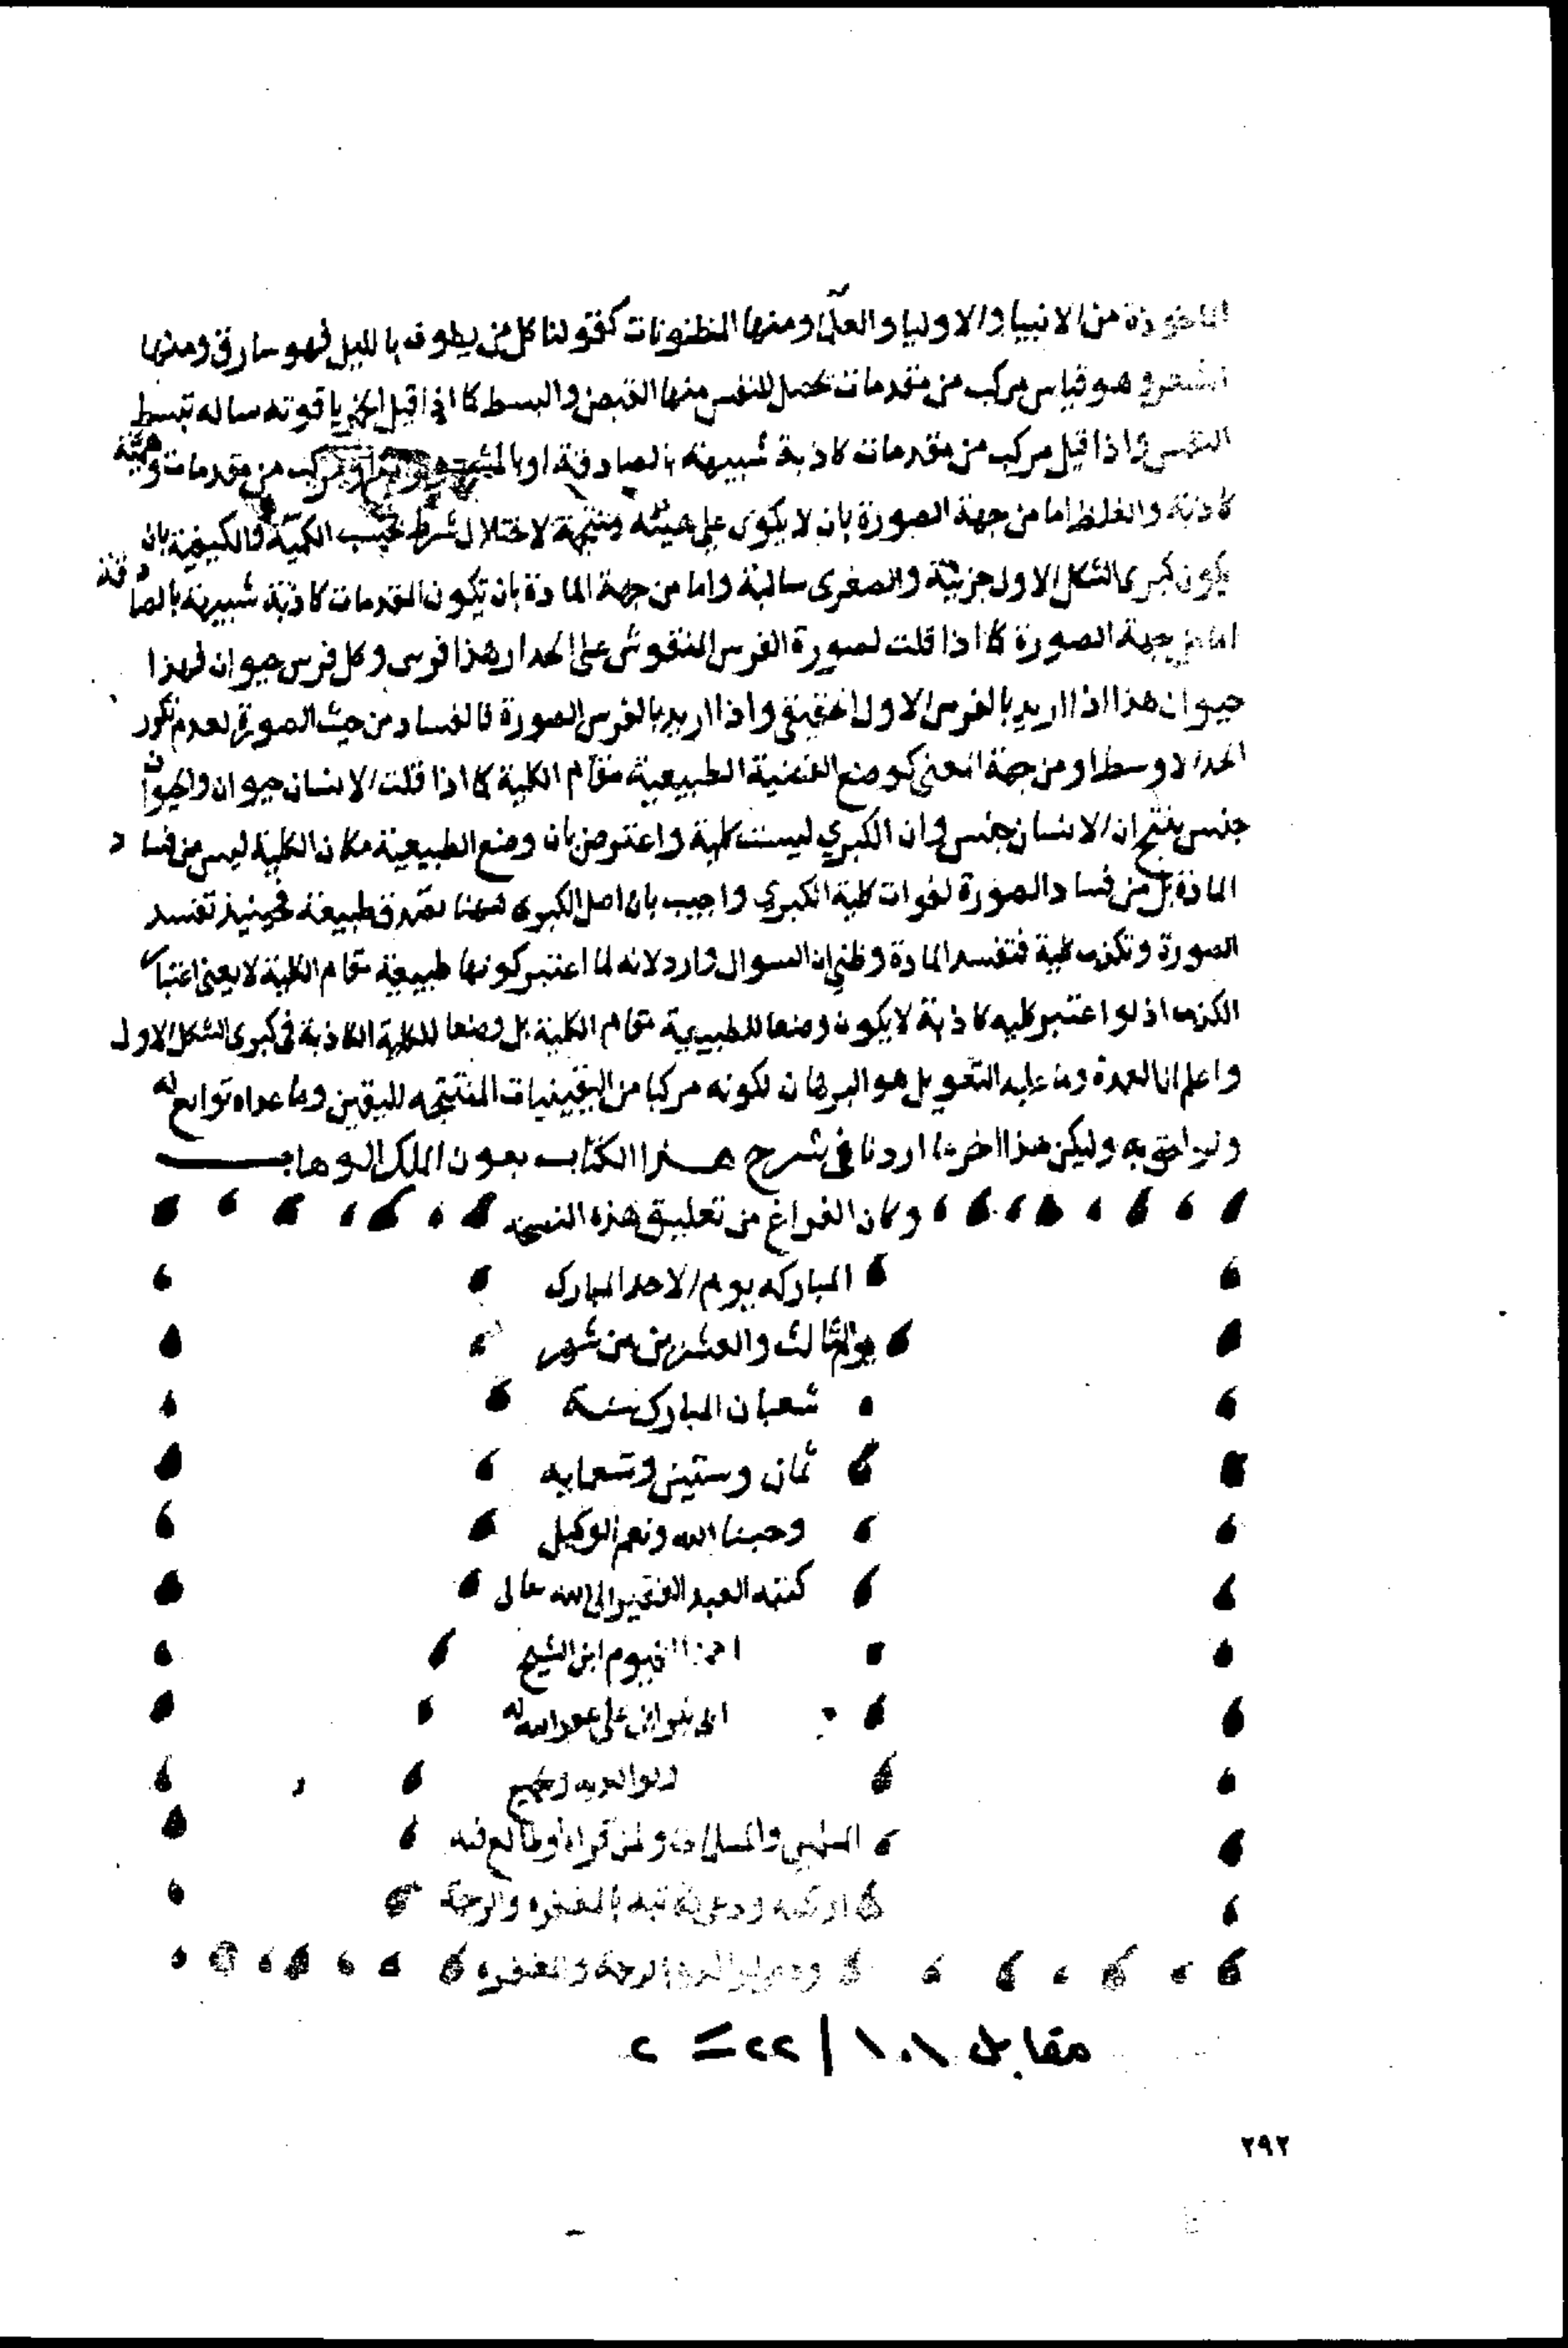 الماخوذة من الانبيا والاوليا والعلما ومنها المظنونات كقولنا كل من يطوف بالليل فهو سارق ومنها
الشعر وهو قياس مركب من مقدمات تحصل للنفس منها القبض والبسط كما اذا قيل الخمر ياقوته سياله تبسط
النفس واذا قيل مركب من مقدمات كاذبة شبيهة بالصادقة او بالمشهورة او مركب من مقدمات وهمية
كاذبة والغلط اما من جهة الصورة بان لا يكون على هيئه منتجة لاختلال شرط بحسب الكمية والكيفية بان
يكون كبرى الشكل الاول جزئية والصغرى سالبة واما من جهة المادة بان يكون المقدمات كاذبة شبيهة بالصادقة
اما من جهة الصورة كما اذا قلت لصورة الفرس المنقوش على الجدار هذا فرس وكل فرس حيوان فهذا
حيوان هذا اذا اريد بالفرس الاول الحقيقي واذا اريد بالفرس الصورة فالفساد من حيث الصورة لعدم تكرر
الحد الاوسط او من جهة المعنى كوضع القضية الطبيعية مقام الكلية كما اذا قلت الانسان حيوان والحيوان
جنس ينتج ان الانسان جنس وان الكبري ليست كلية واعترض بان وضع الطبيعية مكان الكلية ليس من فساد
المادة بل من فساد الصورة لفوات كلية الكبري واجيب بان اصل الكبرى ههنا تصدق طبيعة فحينيذ تفسد
الصورة وتكذب كلية فتفسد المادة وظني ان السوال وارد لانه لما اعتبر كونها طبيعية مقام الكلية لا يعني اعتبار
الكذب اذ لو اعتبر كليه كاذبة لا يكون وضعا للطبيعية مقام الكلية بل وضعا للكلية الكاذبة في كبرى الشكل الاول
واعلم ان العمدة وما عليه التعويل هو البرهان لكونه مركبا من اليقينيات المنتجه لليقين وما عداه توابع له
ولواحق به وليكن هذا اخر ما اردنا في شرح هذا الكتاب بعون الملك الوهاب
وكان الفراغ من تعليق هذه النسخه
المباركه يوم الاحد المبارك
يوم الثالث والعشرين من شهر
شعبان المبارك سنة
ثمان وستين وتسعمايه
وحسبنا الله ونعم الوكيل
كتبه العبد الفقير الى الله تعالى
الفيوم ابن الشيخ
على غفر الله له
ولوالديه ولجميع
المسلمين والمسلمات ولمن قراه او طالع فيه
ودعى لكاتبه بالمغفره والرحمة
الرحمة والمغفره
مقابل ١٠١ / ٢٢ = ٢
٢٩٢